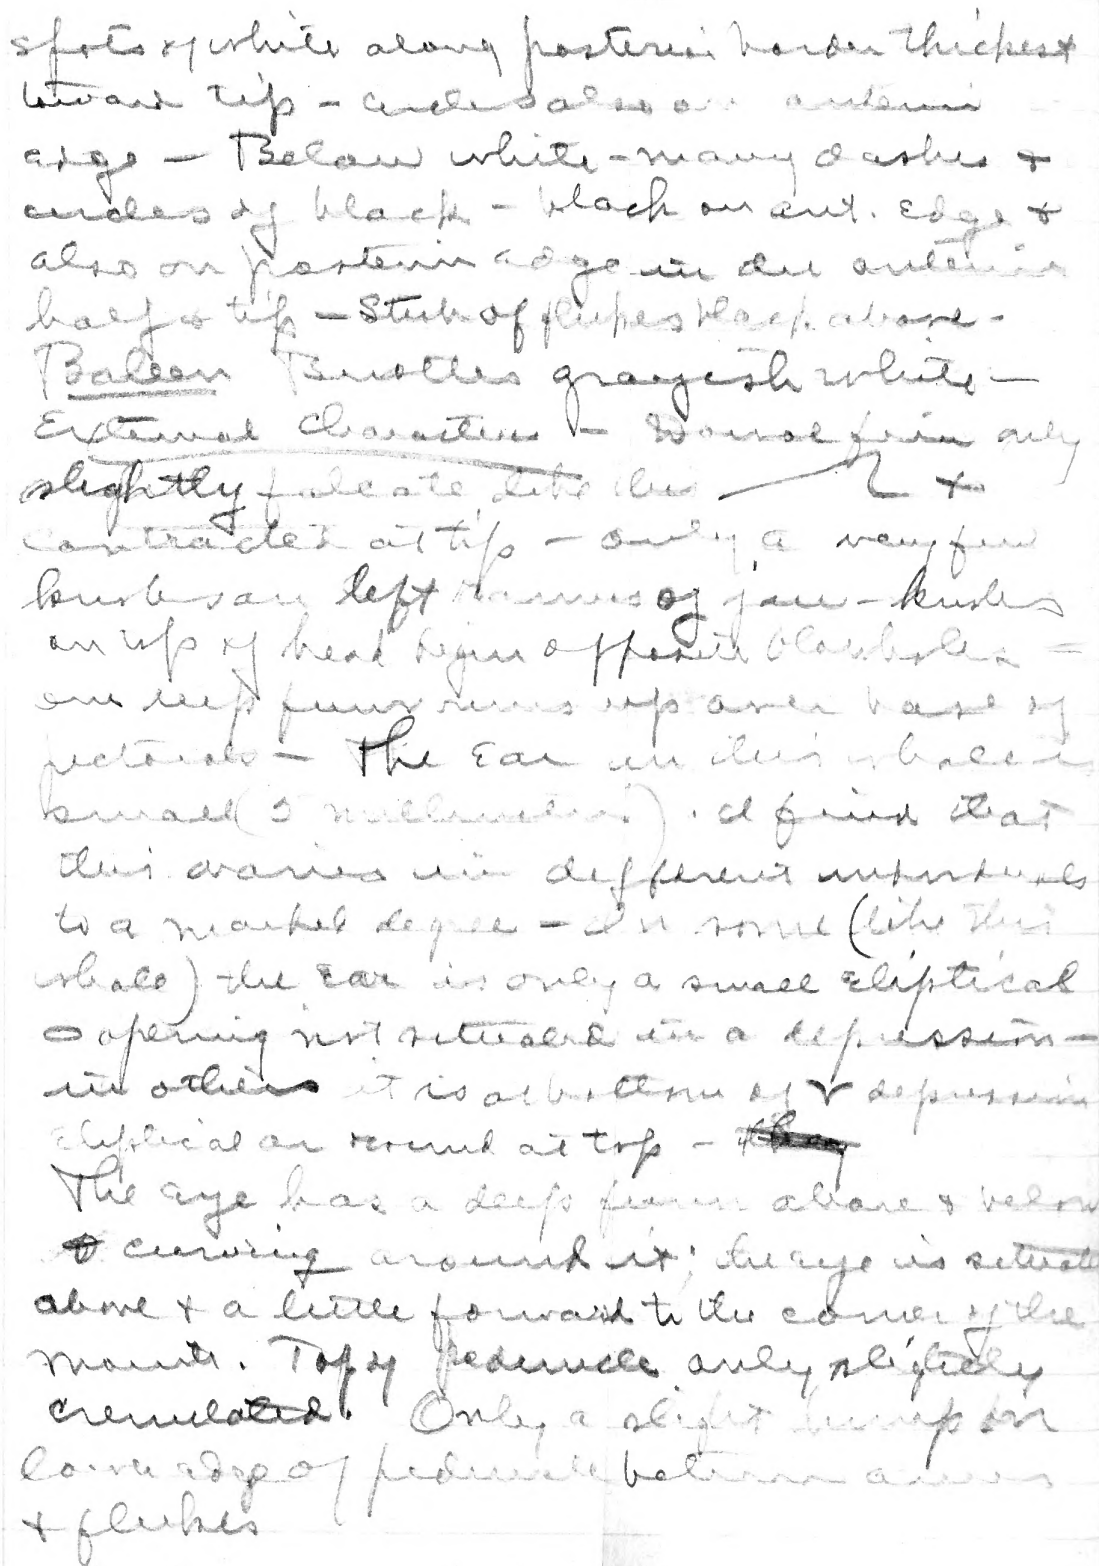 spots of white along posterior border thickest
toward tip - circles also on anterior
edge - Below white - many dashes +
circles of black - black on ant. edge +
also on posterior edge in the anterior
half & tip - Stub of flukes black above -
Baleen Bristles grayish white -
External Characters - Dorsal fin only
slightly falcate like this +
contracted at tip - only a very few
knobs on left ramus of jaw - knobs
on top of head begin opposite blowholes -
one deep furrow runs up over base of
pectorals - The Ear in this whale is
small (5 millimeters). I find that
this varies in different individuals
to a marked degree - In some (like this
whale) the Ear is only a small Eliptical
opening not situated in a depression -
in others it is at bottom of depression
Eliptical or round at top -
The Eye has a deep furrow above & below
curving around it; the eye is situated
above & a little forward to the corner of the
mouth. Top of peduncle only slightly
crenulated. Only a slight hump on
lower edge of peduncle between anus
& flukes